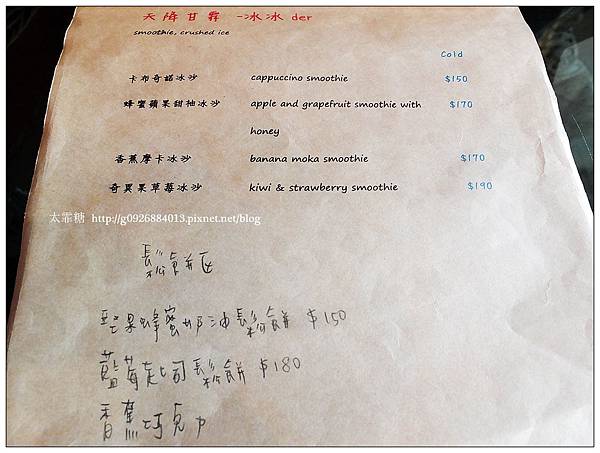 天降甘霖 -冰冰 der
smoothie, crushed ice
Cold
卡布奇諾冰沙 cappuccino smoothie $150
蜂蜜蘋果甜柚冰沙 apple and grapefruit smoothie with honey $170
香蕉摩卡冰沙 banana moka smoothie $170
奇異果草莓冰沙 kiwi & strawberry smoothie $190
太霏糖 http://g0926884013.pixnet.net/blog
鬆餅區
堅果蜂蜜奶油鬆餅 $150
藍莓起司鬆餅 $180
香蕉巧克力